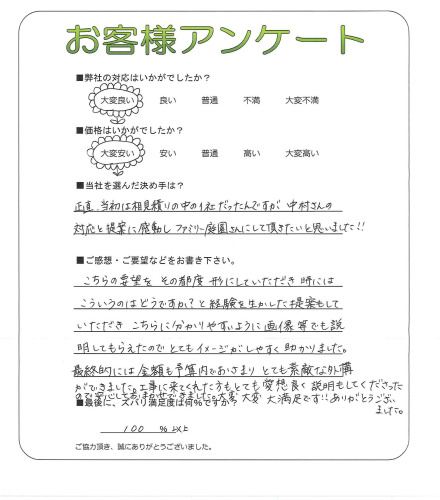 お客様アンケート
■弊社の対応はいかがでしたか?
大変良い 良い 普通 不満 大変不満
■価格はいかがでしたか?
大変安い 安い 普通 高い 大変高い
■当社を選んだ決め手は?
正直、当初は相見積りの中の1社だったんですが 中村さんの
対応と提案に感動し ファミリー庭園さんにして頂きたいと思いました!!
■ご感想・ご要望などをお書き下さい。
こちらの要望を その都度 形にしていただき 時には
こういうのはどうですか?と経験を生かした提案もして
いただき こちらに分かりやすいように 画像等でも説
明してもらえたので とてもイメージがしやすく 助かりました。
最終的には 金額も予算内でおさまり とても素敵な外構
ができました。工事に来てくれた方もとても愛想良く 説明もしてくださった
ので安心しておまかせできました。大変 大変 大満足です!! ありがとうござい
ました。
■最後に、ズバリ満足度は何%ですか?
100 %以上
ご協力頂き、誠にありがとうございました。